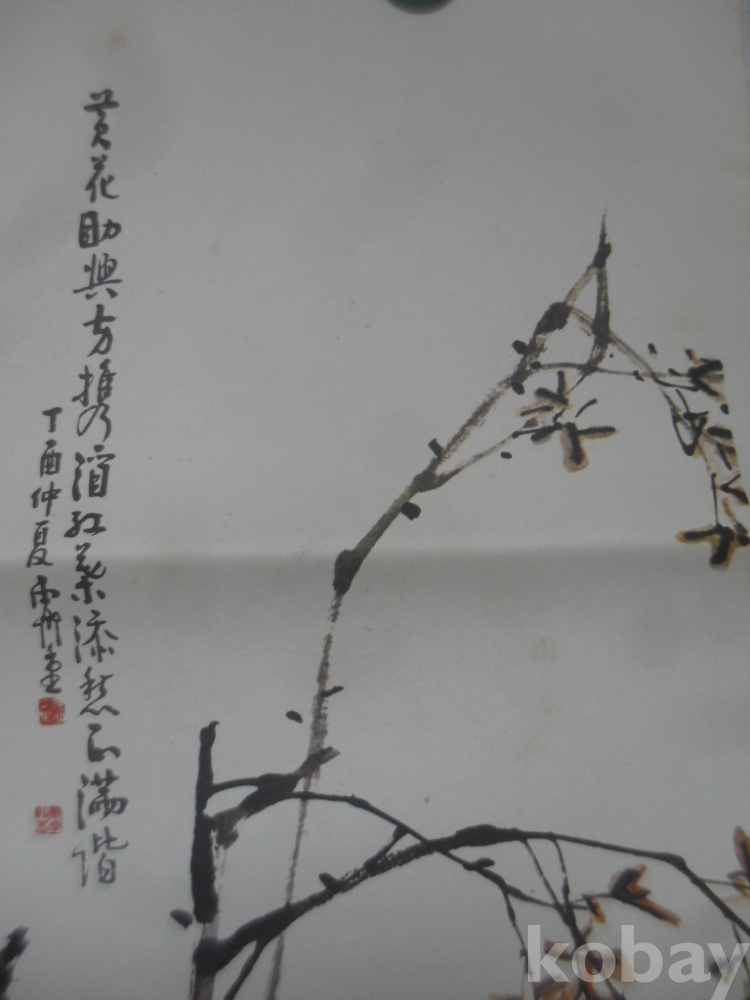 黄花助興方携酒紅葉添愁正滿階
丁酉仲夏
kobay